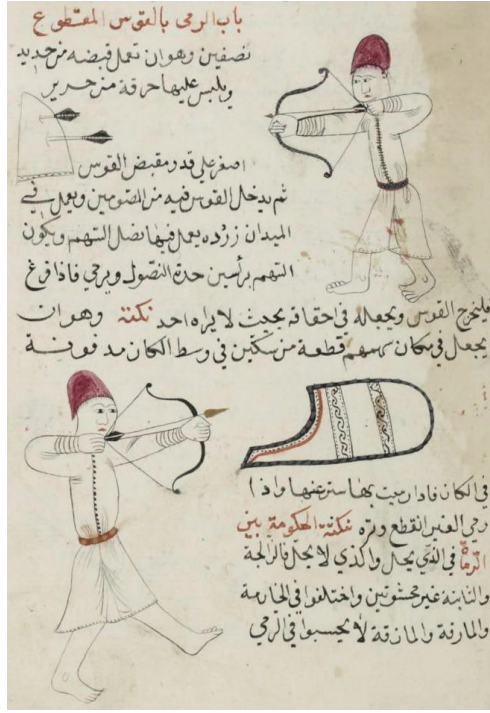 باب الرمى بالقوس المقطوع
نصفين وهو ان تعمل قبضه من حديد
ويلبس عليها خرقة من حرير
اصغر على قدر مقبض القوس
ثم يدخل القوس فيه من المقومين ويعمل فى
الميدان زرده يعمل فيها نصل السهم ويكون
السهم برأسين حدة النصول ويرمى فاذا فرغ
فليخرج القوس ويجعله فى احقافه بحيث لا يراه احد نكتة وهو ان
يجعل فى مكان سهم قطعة من سكين فى وسط الكان مدفونة
فى الكان فاذا رميت بها سترعنها واذا
رمى الغير انقطع وتره نكتة الحكومة بين
الرماة فى الذى يحل والذى لا يحل فالرالجة
والثابتة غير محشوتين واختلفوا فى الخارمة
والمارقة والمازقة لا يحسبوا فى الرمى